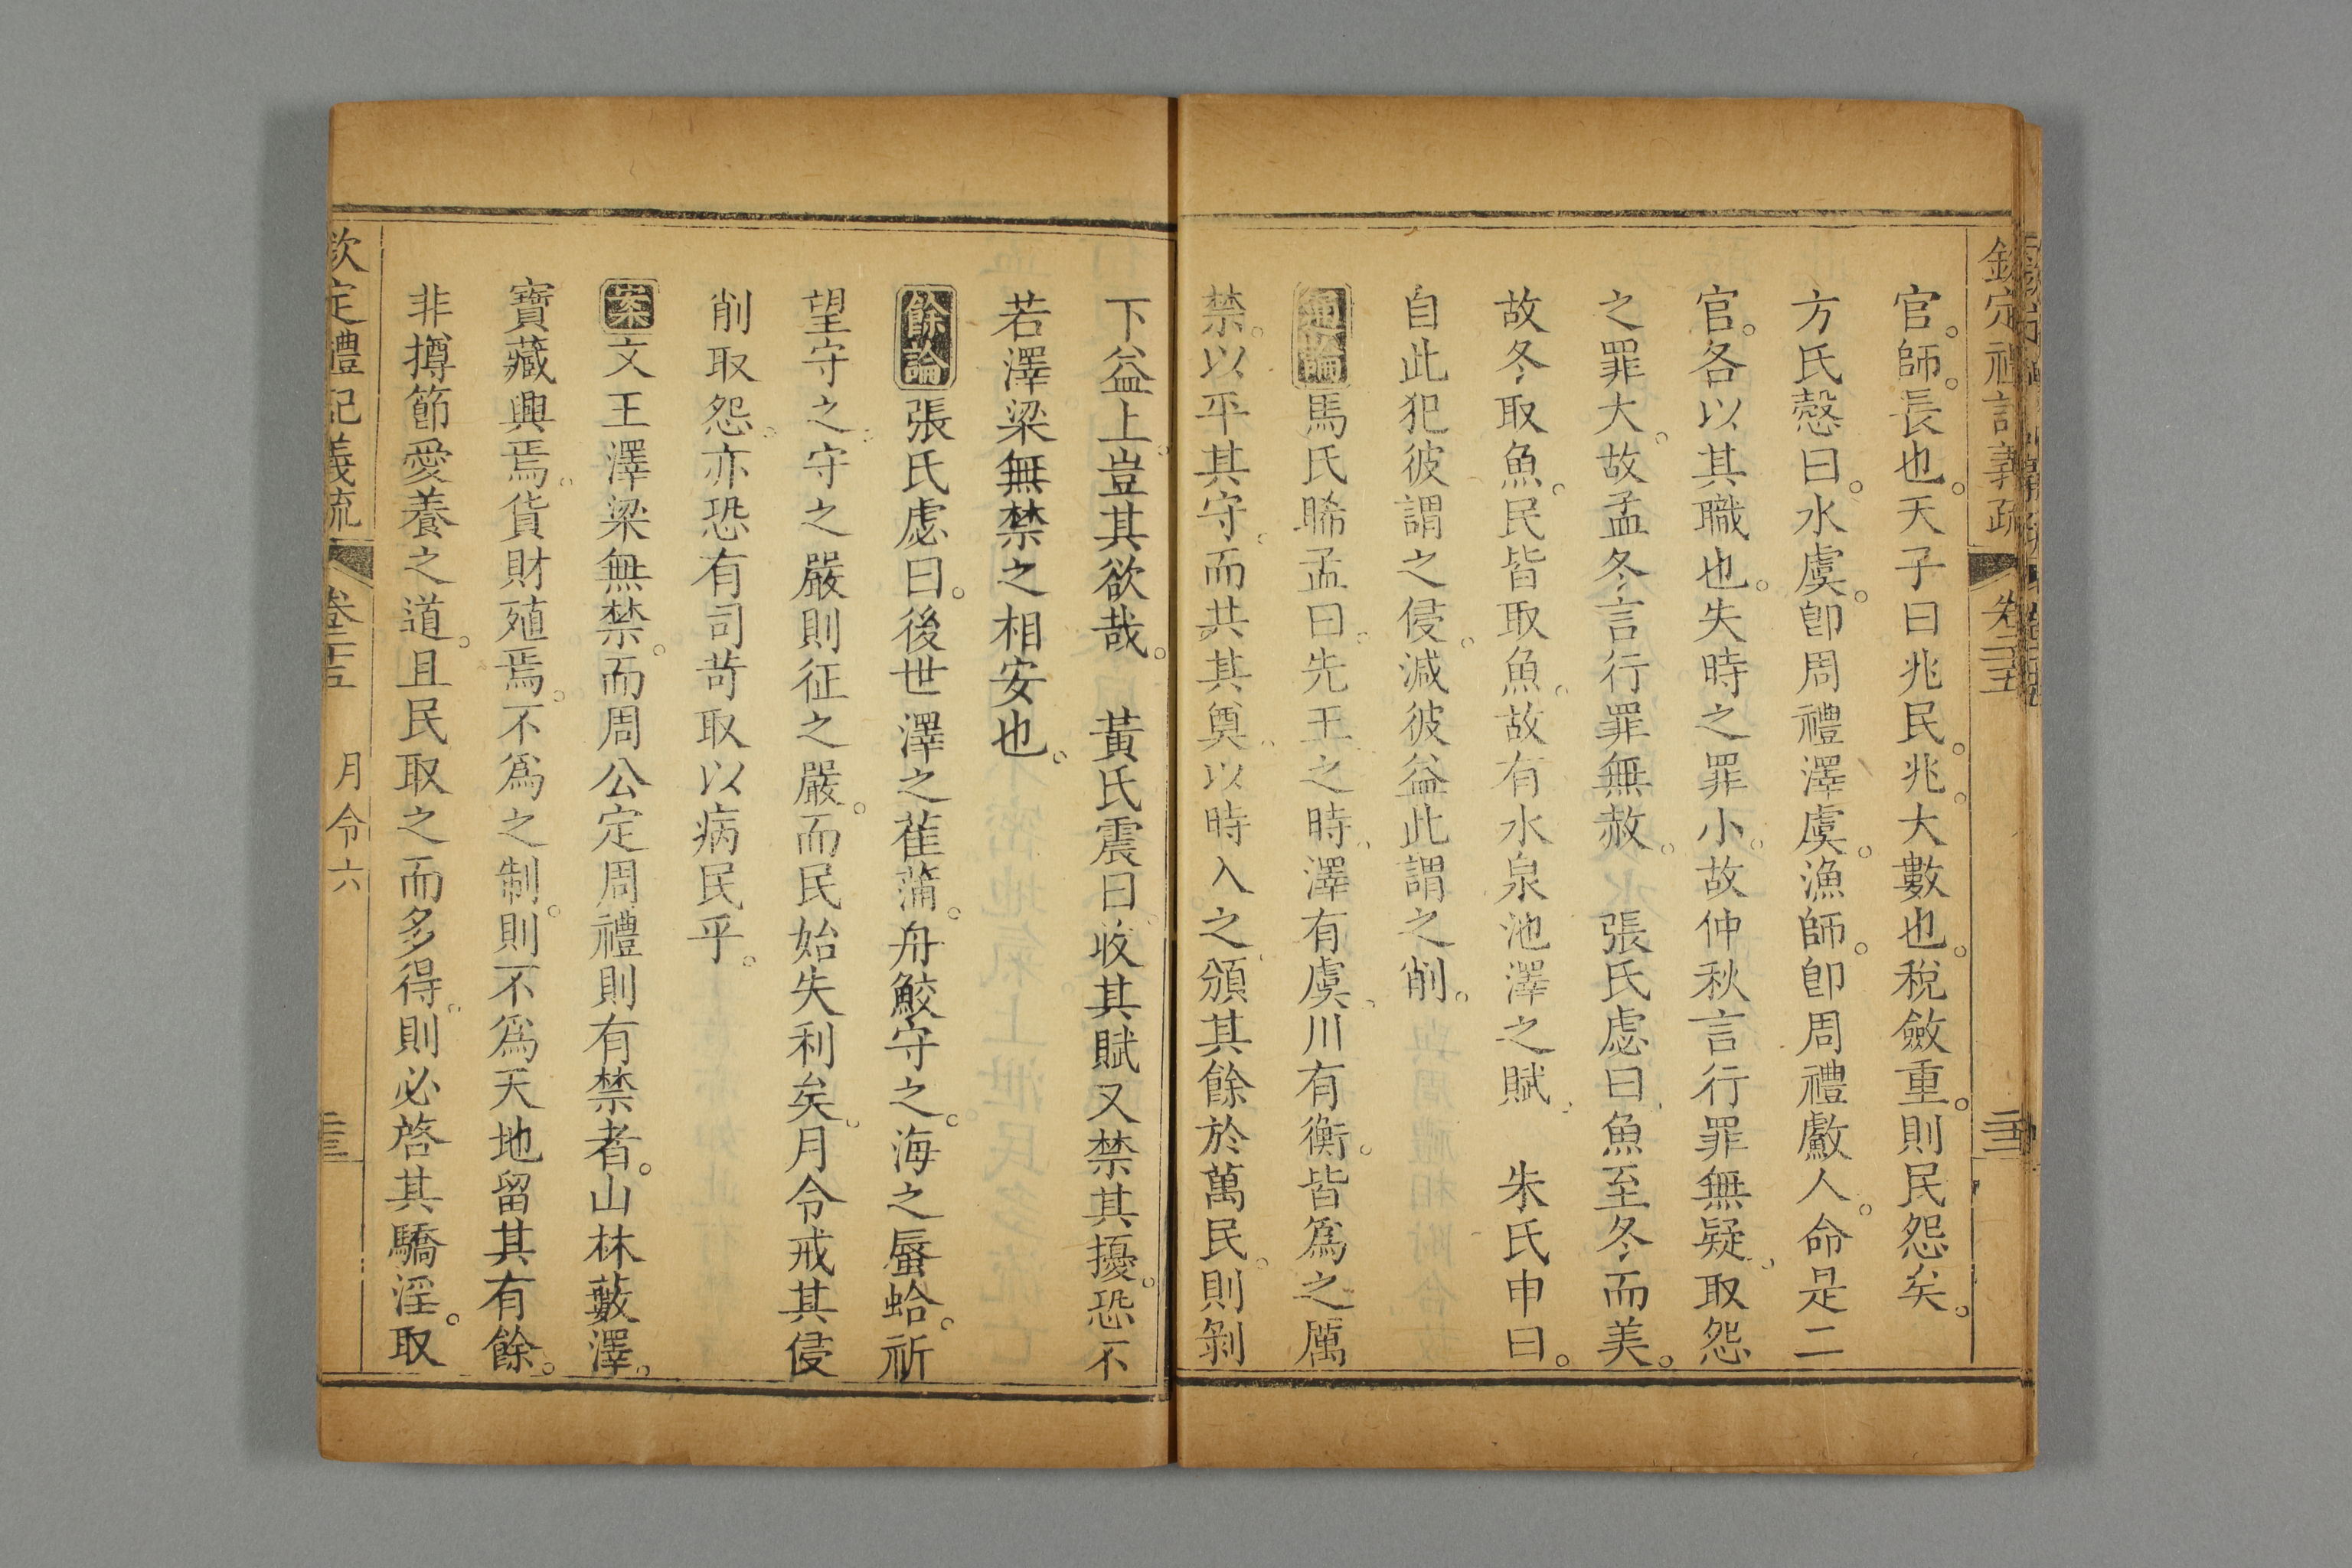 欽定禮記義疏 卷二十五
官。師。長也。天子曰兆民。兆。大數也。稅斂重。則民怨矣。
方氏慤曰。水虞。卽周禮澤虞。漁師。卽周禮䱷人。命是二
官。各以其職也。失時之罪小。故仲秋言行罪無疑。取怨
之罪大。故孟冬言行罪無赦。 張氏慮曰。魚至冬而美。
故冬取魚。民皆取魚。故有水泉池澤之賦。 朱氏申曰。
自此犯彼謂之侵。減彼益此謂之削。
通論馬氏晞孟曰。先王之時。澤有虞。川有衡。皆爲之厲
禁。以平其守。而共其奠。以時入之。頒其餘於萬民。則剝
下益上。豈其欲哉。 黃氏震曰。收其賦又禁其擾。恐不
若澤梁無禁之相安也。
餘論張氏慮曰。後世澤之萑蒲。舟鮫守之。海之蜃蛤。祈
望守之。守之嚴則征之嚴。而民始失利矣。月令戒其侵
削取怨。亦恐有司苛取以病民乎。
案文王澤梁無禁。而周公定周禮則有禁者。山林藪澤。
寶藏興焉。貨財殖焉。不爲之制。則不爲天地留其有餘。
非撙節愛養之道。且民取之而多得。則必啓其驕淫。取
欽定禮記義疏 卷二十五 月令六